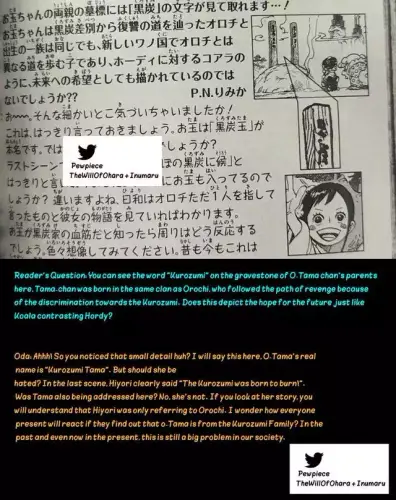 お玉ちゃんの両親の墓標には「黒炭」の文字が見て取れます…!
お玉ちゃんは黒炭差別から復讐の道を辿ったオロチと
出生の一族は同じでも、新しいワノ国でオロチとは
異なる道を歩む子であり、ホーディに対するコアラの
ように、未来への希望としても描かれているのでは
ないでしょうか?? P.N.りみか
お〜〜、そんな細かいとこ気づいちゃいましたか!
これは、はっきり言っておきましょう。お玉は「黒炭玉」が
本名です。では しょうか?
ラストシーン の黒炭に候」と
はっきりと言い にお玉も入ってるので
しょうか? 違いますよね、日和はオロチただ1人を指して
言ったものと彼女の物語を見ていればわかります。
お玉が黒炭家の血筋だと知ったら周りはどう反応する
でしょう。色々想像してみてください。昔も今もこれは
Pewpiece
TheWillOfOhara + Inumaru
Reader's Question: You can see the word "Kurozumi" on the gravestone of O.Tama chan's parents
here. Tama.chan was born in the same clan as Orochi, who followed the path of revenge because
of the discrimination towards the Kurozumi. Does this depict the hope for the future just like
Koala contrasting Hordy?
Oda: Ahhh! So you noticed that small detail huh? I will say this here, O.Tama's real
name is "Kurozumi Tama". But should she be
hated? In the last scene, Hiyori clearly said "The Kurozumi was born to burn!".
Was Tama also being addressed here? No, she's not. If you look at her story, you
will understand that Hiyori was only referring to Orochi. I wonder how everyone
present will react if they find out that o.Tama is from the Kurozumi Family? In the
past and even now in the present, this is still a big problem in our society.
Pewpiece
TheWillOfOhara + Inumaru